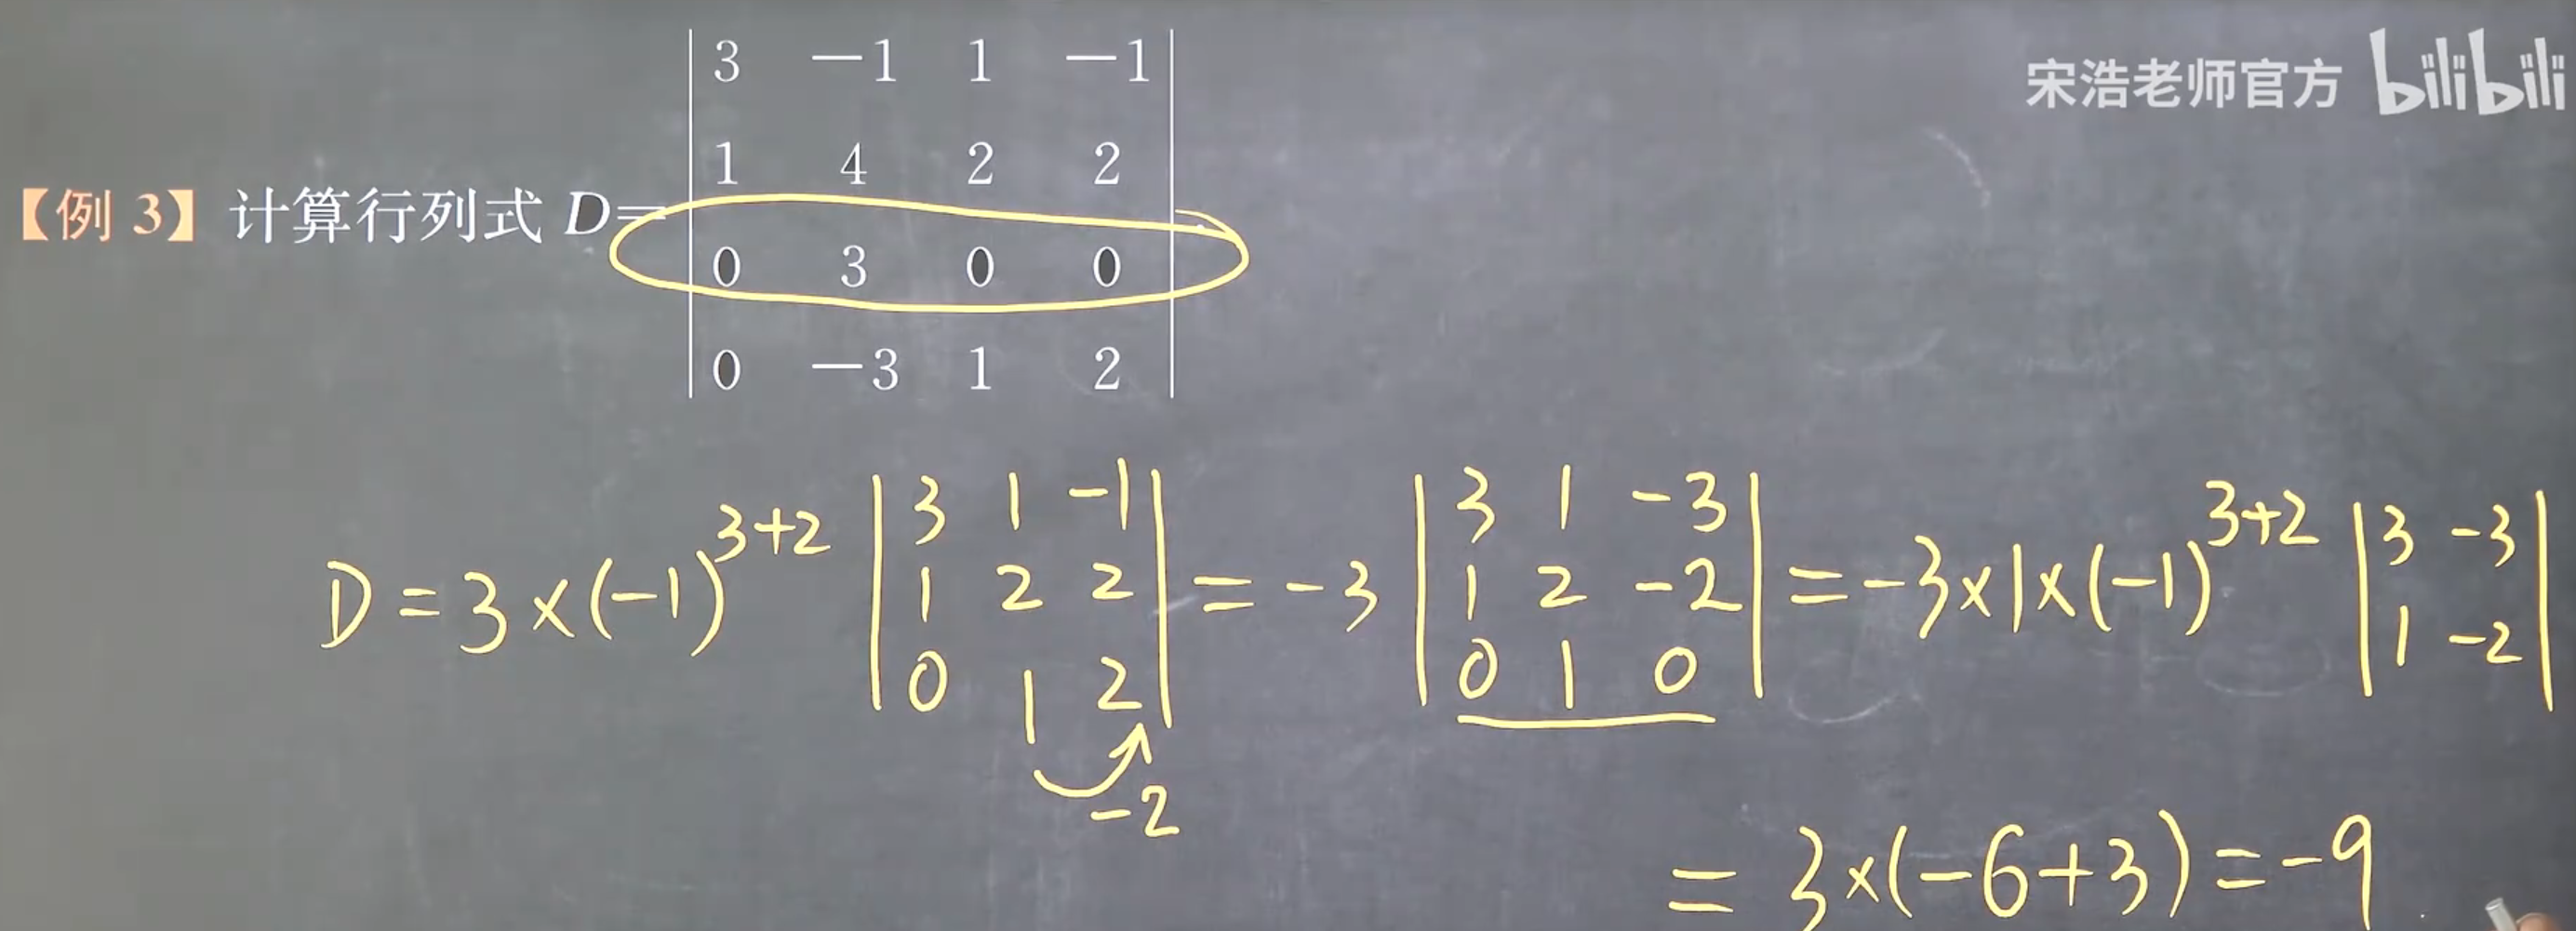 宋浩老师官方 bilibili
【例 3】计算行列式 D=
3 -1 1 -1
1 4 2 2
0 3 0 0
0 -3 1 2
D = 3×(-1)^{3+2} |3 1 -1; 1 2 2; 0 1 2| = -3 |3 1 -3; 1 2 -2; 0 1 0| = -3×1×(-1)^{3+2} |3 -3; 1 -2|
-2
= 3×(-6+3) = -9